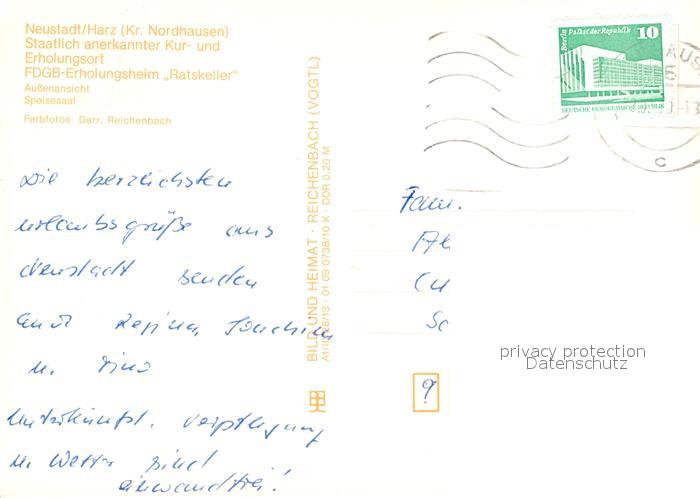 Neustadt/Harz (Kr. Nordhausen)
Staatlich anerkannter Kur- und
Erholungsort
FDGB-Erholungsheim „Ratskeller"
Außenansicht
Speisesaal
Farbfotos: Darr, Reichenbach
Die herzlichsten
Urlaubsgrüße aus
Neustadt senden
Regina, Joachim
u.
Unterkunft, Verpflegung
u. Wetter sind
einwandfrei!
BILD UND HEIMAT · REICHENBACH (VOGTL)
01 09 0738/10 K · DDR 0,20 M
Berlin Palast der Republik
10
DEUTSCHE DEMOKRATISCHE REPUBLIK
c
Fam.
privacy protection
Datenschutz
9